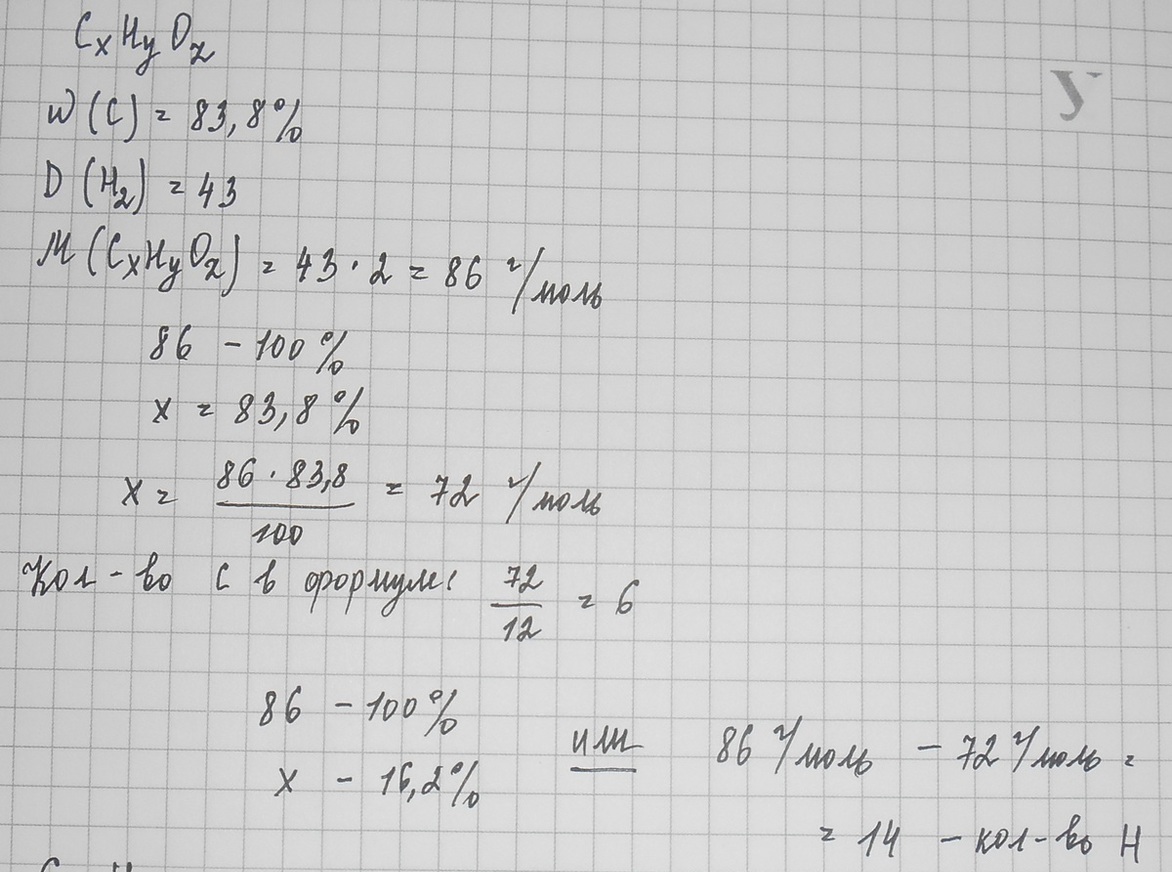 CxHyOz
W(C) = 83,8%
D(H₂) = 43
M(CxHyOz) = 43 · 2 = 86 г/моль
86 - 100%
x = 83,8%
x = 86 · 83,8 / 100 = 72 г/моль
Кол-во C в формуле: 72/12 = 6
86 - 100%
x - 16,2%
или
86 г/моль - 72 г/моль =
= 14 - кол-во H
У